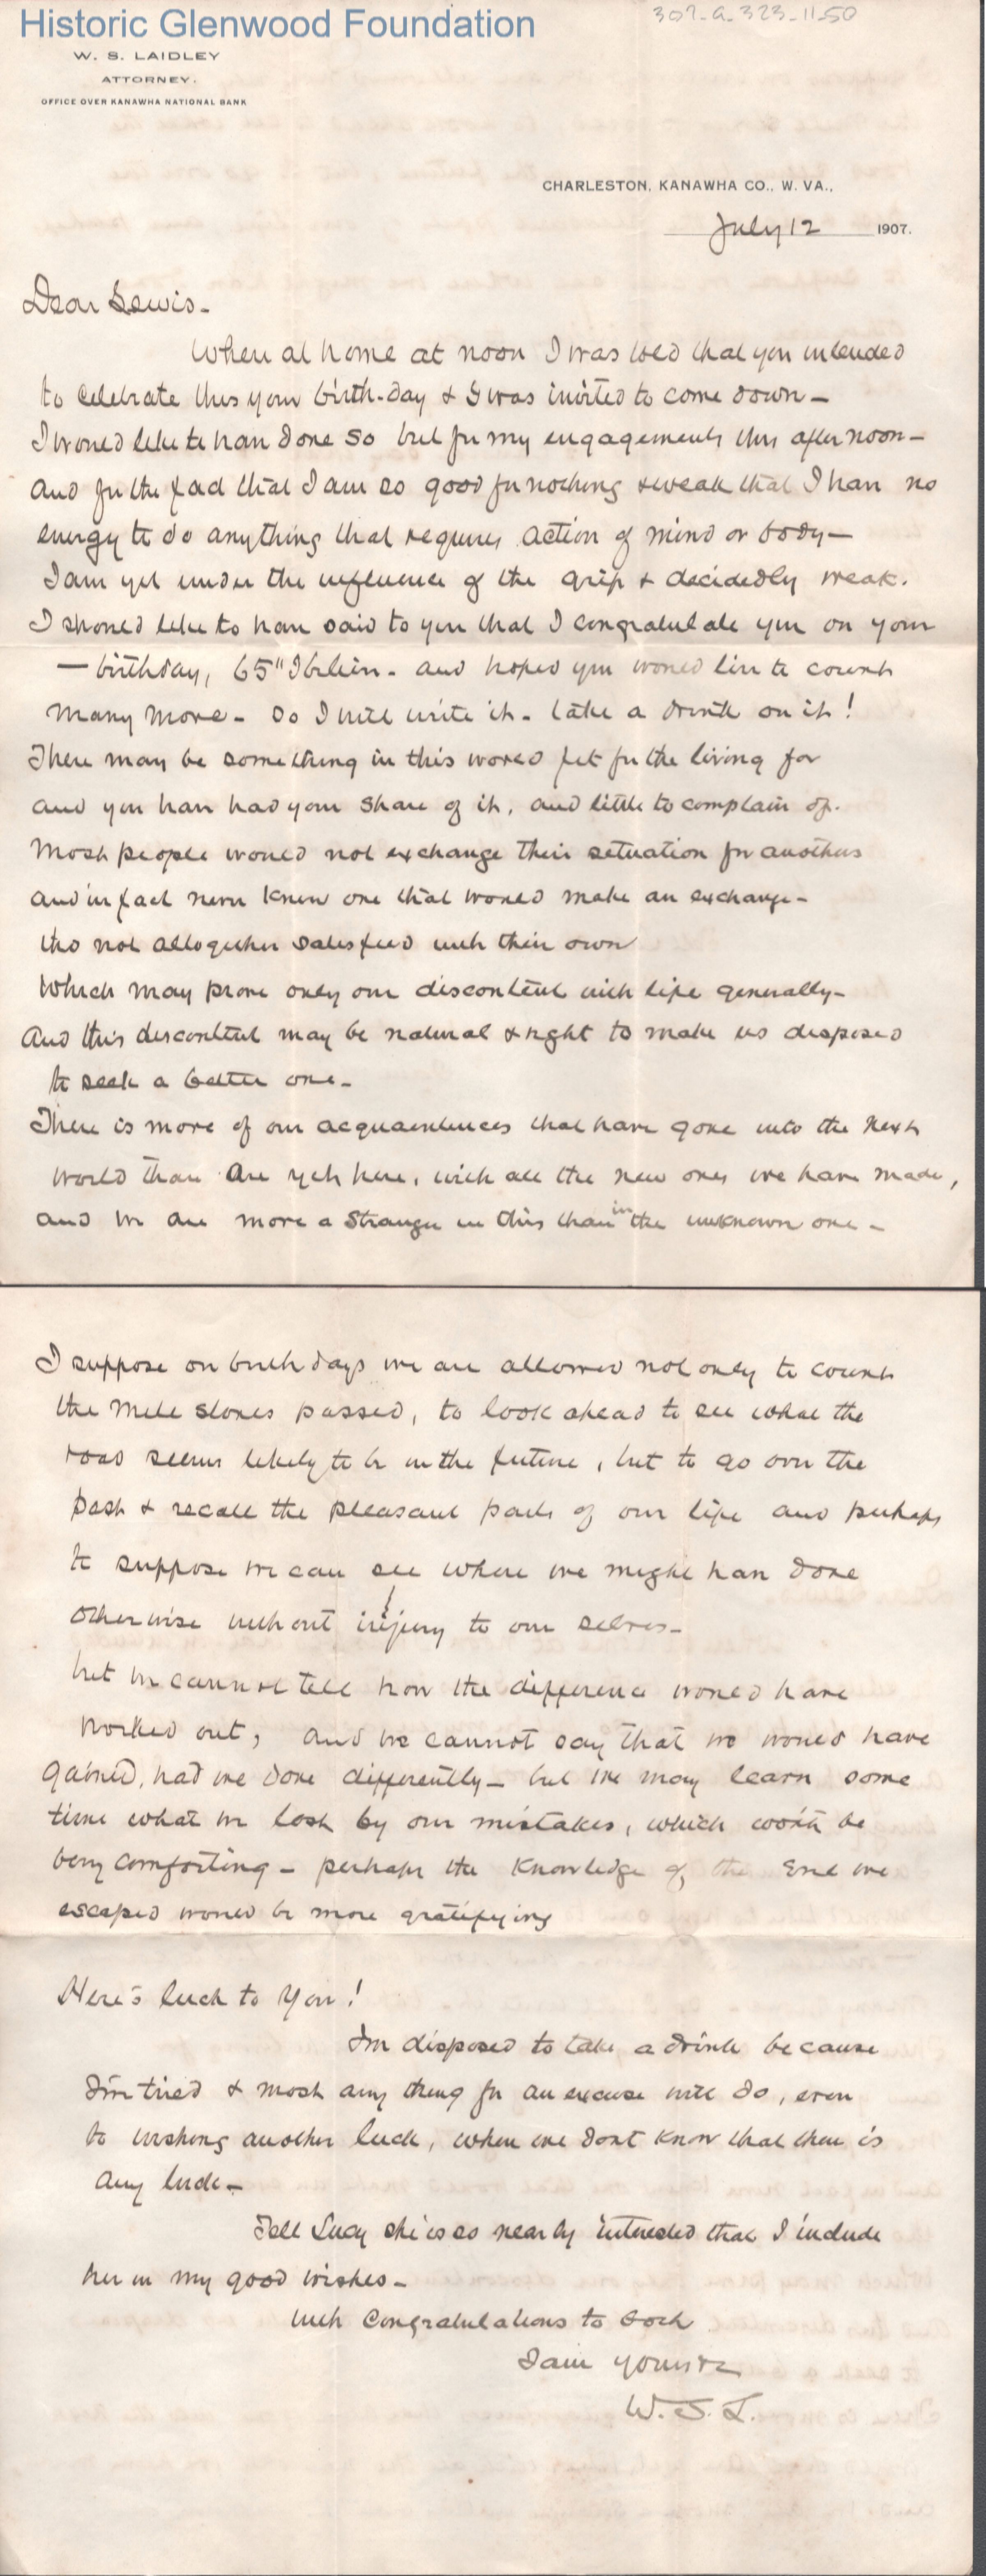 Historic Glenwood Foundation
307-a-323-11-50
W. S. LAIDLEY
ATTORNEY.
OFFICE OVER KANAWHA NATIONAL BANK
CHARLESTON, KANAWHA CO., W. VA.,
July 12 1907.
Dear Lewis-
When at home at noon I was told that you intended
to celebrate this your birth-day & I was invited to come down-
I would like to have done so but for my engagements this afternoon-
and for the fact that I am so good for nothing & weak that I have no
energy to do anything that requires action of mind or body-
I am yet under the influence of the grip & decidedly weak.
I should like to have said to you that I congratulate you on your
- birthday, 65" I believe - and hoped you would live to count
many more - So I will write it - take a drink on it!
There may be something in this world yet for the living for
and you have had your share of it, and little to complain of.
Most people would not exchange their situation for anothers
and in fact never knew one that would make an exchange-
tho not altogether satisfied with their own
Which may prove only our discontent with life generally-
And this discontent may be natural & right to make us disposed
to seek a better one-
There is more of our acquaintences that have gone into the next
world than are yet here, with all the new ones we have made,
and we are more a stranger in this than in the unknown one-
I suppose on birthdays we are allowed not only to count
the mile stones passed, to look ahead to see what the
road seems likely to be in the future, but to go over the
past & recall the pleasant parts of our life and perhaps
to suppose we can see where we might have done
otherwise without injury to our selves-
but we cannot tell how the difference would have
worked out, and we cannot say that we would have
gained, had we done differently- but we may learn some
time what we lost by our mistakes, which wont be
very comforting - perhaps the knowledge of the evil we
escaped would be more gratifying
Here's luck to You!
Im disposed to take a drink because
I'm tired & most any thing for an excuse will do, even
to wishing another luck, when we dont know that there is
any luck-
Tell Lucy she is so nearly interested that I include
her in my good wishes-
With Congratulations to both
I am yours &c
W. S. L.